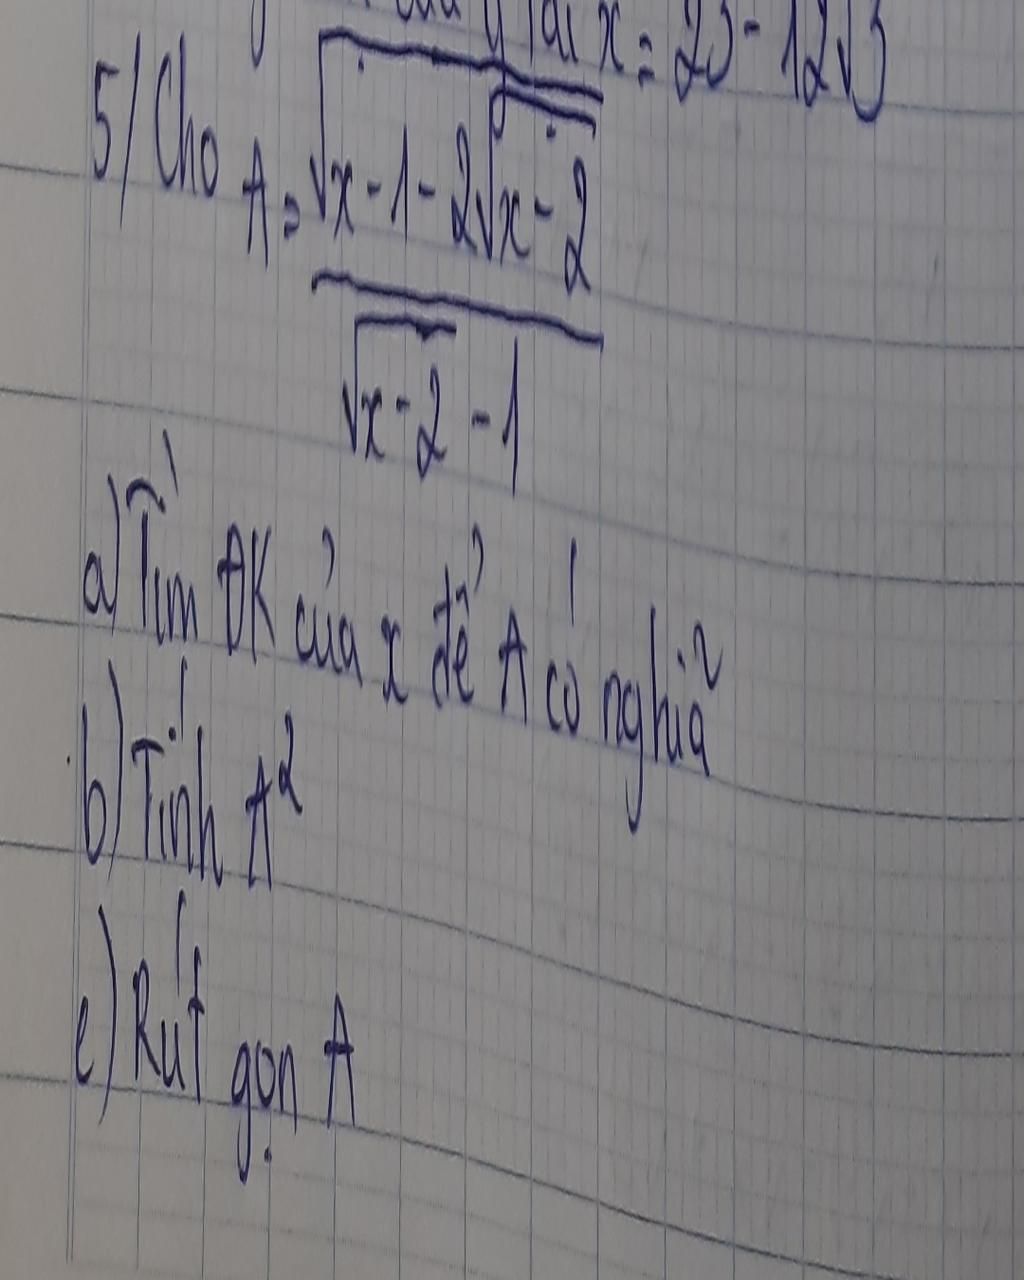 x = 23 - 12√3
5/ Cho A = √(x - 1 - 2√(x - 2)) / (√(x - 2) - 1)
a) Tìm ĐK của x để A có nghiã
b) Tính A²
c) Rút gọn A